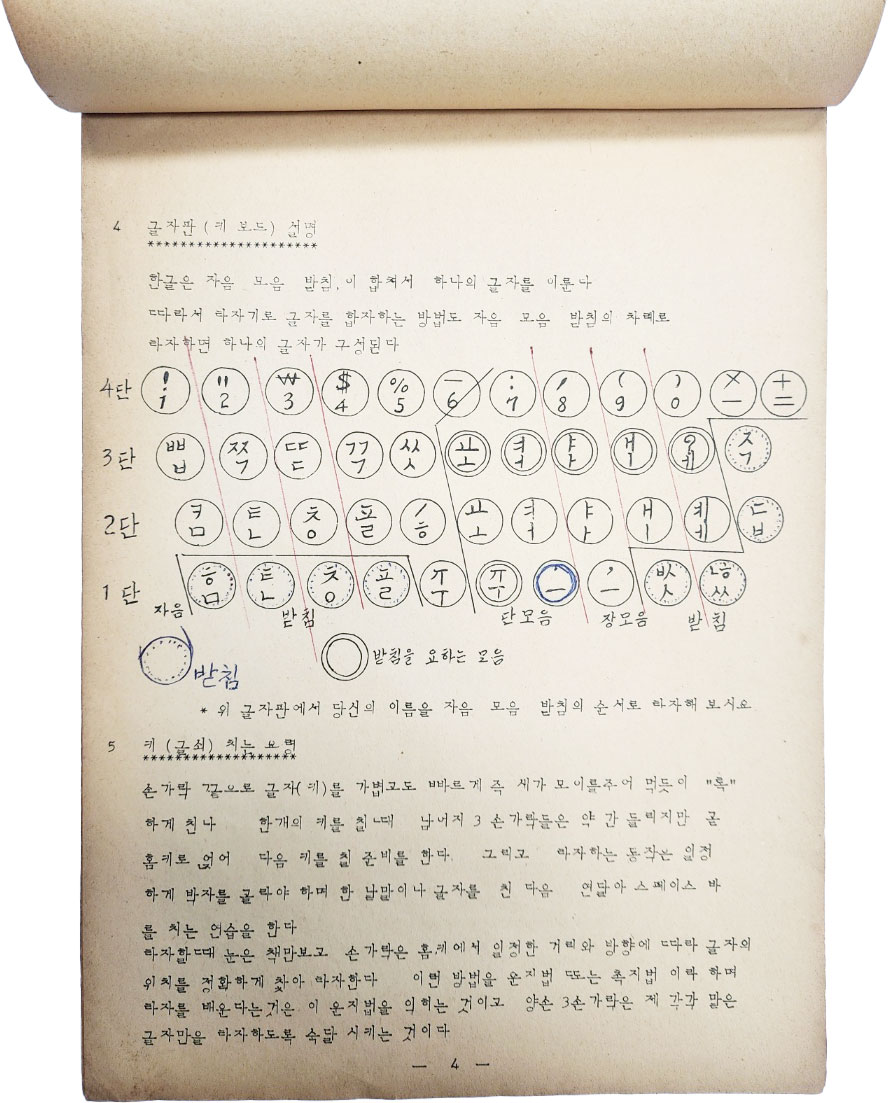 4 글자판 (키 보드) 설명
*********************
한글은 자음 모음 받침,이 합쳐서 하나의 글자를 이룬다
따라서 타자기로 글자를 합자하는 방법도 자음 모음 받침의 차례로
타자하면 하나의 글자가 구성된다
4단 ! 1 " 2 ₩ 3 $ 4 % 5 _ 6 : 7 / 8 ( 9 ) 0 × — + =
3단 ㅃㅂ ㅉㅈ ㄸㄷ ㄲㄱ ㅆㅅ ㅛㅗ ㅕㅓ ㅑㅏ ㅐㅣ ㅖㅔ ㅈㄱ
2단 ㅋㅁ ㅌㄴ ㅊㅇ ㅍㄹ /ㅎ ㅛㅗ ㅕㅓ ㅑㅏ ㅐㅣ ㅖㅔ ㄷㅂ
1단 ㅎㅁ ㅌㄴ ㅊㅇ ㅍㄹ ㅠㅜ ㅠㅜ ' ㅡ ' ㅡ ㅄㅅ ㄶㅆ
자음 받침 단모음 장모음 받침
받침 받침을 요하는 모음
* 위 글자판에서 당신의 이름을 자음 모음 받침의 순서로 타자해 보시요
5 키 (글쇠) 치는 요령
*******************
손가락 끝으로 글자(키)를 가볍고도 빠르게 즉 새가 모이를주어 먹듯이 "톡"
하게 친다 한개의 키를 칠 때 남어지 3 손가락들은 약 간 들리지만 곧
홈키로 얹어 다음 키를 칠 준비를 한다. 그리고 타자하는 동작은 일정
하게 박자를 골라야 하며 한 낱말이나 글자를 친 다음 연달아 스페이스 바
를 치는 연습을 한다
타자할때 눈은 책만보고 손가락은 홈키에서 일정한 거리와 방향에 따라 글자의
위치를 정확하게 찾아 타자한다 이런 방법을 운지법 또는 촉지법 이라 하며
타자를 배운다는것은 이 운지법을 익히는 것이고 양손 3손가락은 제 각각 맡은
글자만을 타자하도록 숙달 시키는 것이다
— 4 —